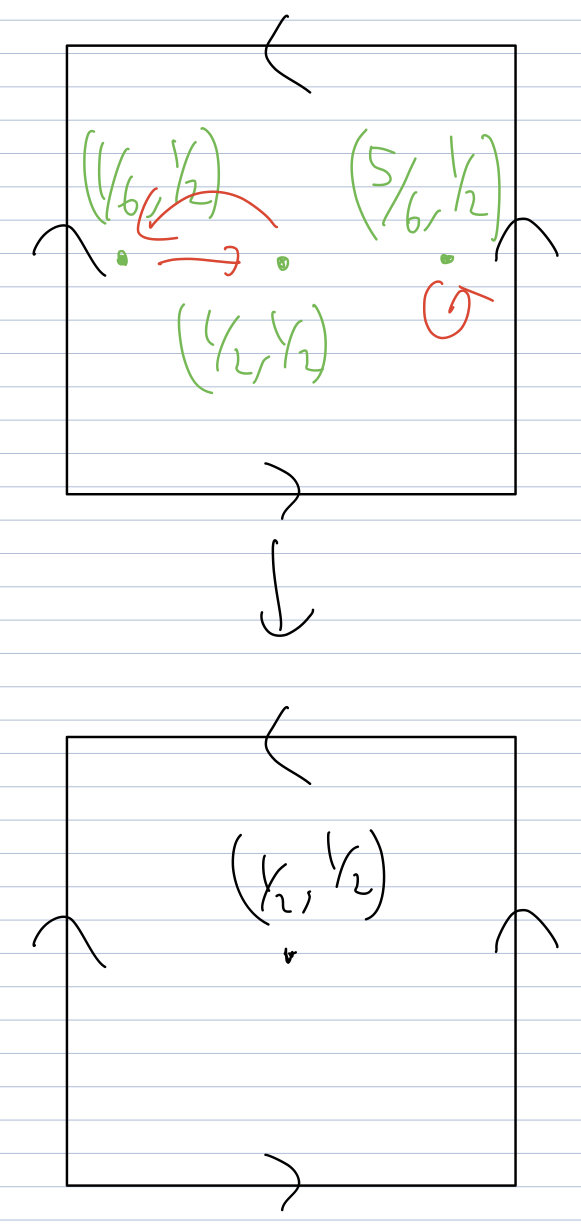 (1/6, 1/2) (5/6, 1/2)
(1/2, 1/2)
(1/2, 1/2)